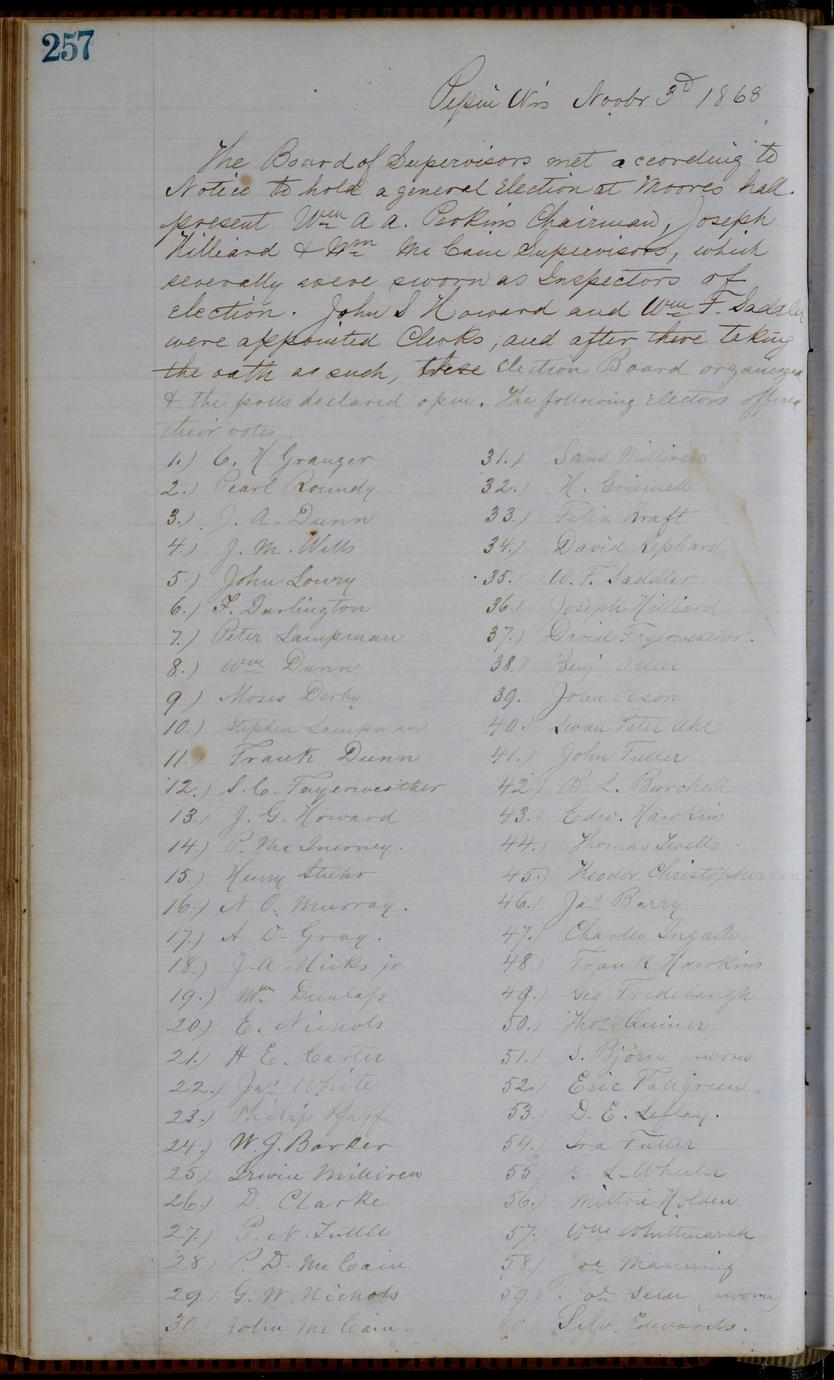 257
Pepin Wis Novbr 3d 1868
The Board of Supervisors met according to
Notice to hold a general Election at Moores hall.
present Wm A A. Perkins Chairman, Joseph
Hilliard & Wm McCain Supervisors, which
severally were sworn as Inspectors of
election. John S Howard and Wm F. Saddler
were appointed Clerks, and after there taking
the oath as such, these Election Board organized
& the polls declared open. The following Electors offered
their votes.
1.) C. H. Granger
2.) Pearl Roundy
3.) J. A. Dunn
4.) J. M. Wills
5.) John Lowry
6.) F. Darlington
7.) Peter Lampman
8.) Wm Dunn
9.) Moses Derby
10.) Stephen Lampman
11.) Frank Dunn
12.) S. C. Fayerweather
13.) J. G. Howard
14.) P. McInerney.
15.) Henry Stuhr
16.) N. O. Murray.
17.) A. D. Gray.
18.) J. A. Hicks jr
19.) Wm Dunlap
20.) E. Nichols
21.) H E. Carter
22.) Jas White
23.) Philip Pfaff
24.) W J. Barker
25.) Irwin Milliren
26.) D. Clarke
27.) P. N. Tuttle
28.) P. D. McCain
29.) G. W. Nichols
30.) John McCain
31.) Saml Milliren
32.) H.
33.) Felix Kraft
34.) David Kephard
35.) W. F. Saddler
36.) Joseph Hilliard
37.) David Fayerweather.
38.) Benj
39. John Olson
40.) Swan Peter Ahl
41.) John Fuller
42.) B. L. Burchell
43.) Edw. Hawkins
44.) Thomas
45.) Theodor Christopherson
46.) Jas Barry
47.) Charles Ingalls
48.) Frank Hawkins
49.) Geo Fredebaugh
50.) Thos Quiner
51.) S. Björn (sworn
52.) Eric Fallgreen
53.) D. E. Lefloy.
54.) Ira Fuller
55.) G. L. Wheeler
56.) Milton Holden
57.) Wm Whittmarsh
58.) Joe Manning
59.) (sworn)
60.) Sylv. Edwards.